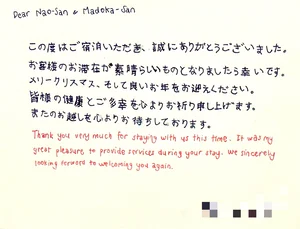 Dear Nao-San & Madoka-San
この度はご宿泊いただき、誠にありがとうございました。
お客様のお滞在が素晴らしいものとなりましたら幸いです。
メリークリスマス、そして良いお年をお迎えください。
皆様の健康とご多幸を心よりお祈り申し上げます。
またのお越しを心よりお待ちしております。
Thank you very much for staying with us this time. It was my
great pleasure to provide services during your stay. We sincerely
looking forward to welcoming you again.